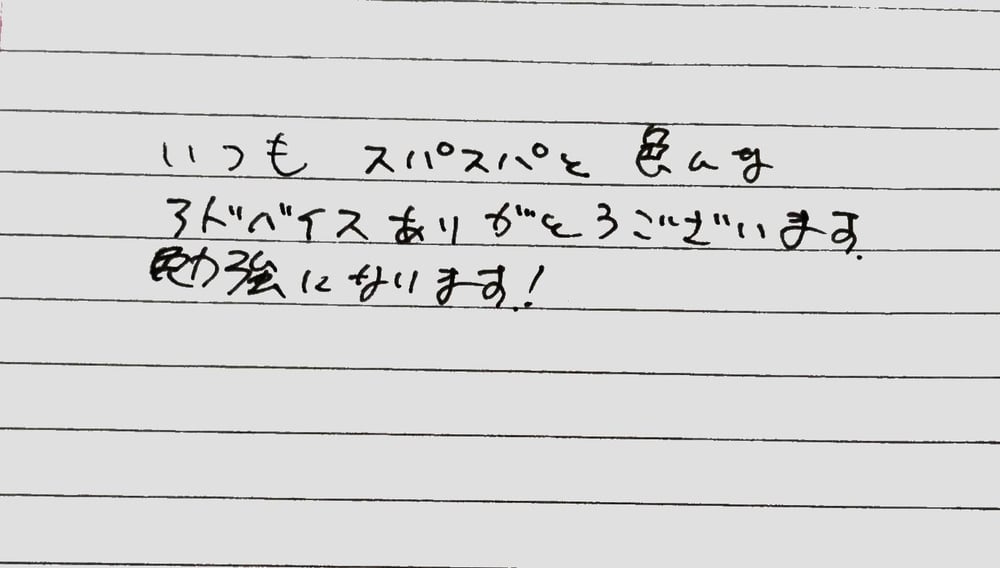 いつも スパスパと 色んな
アドバイスありがとうございます.
勉強になります!